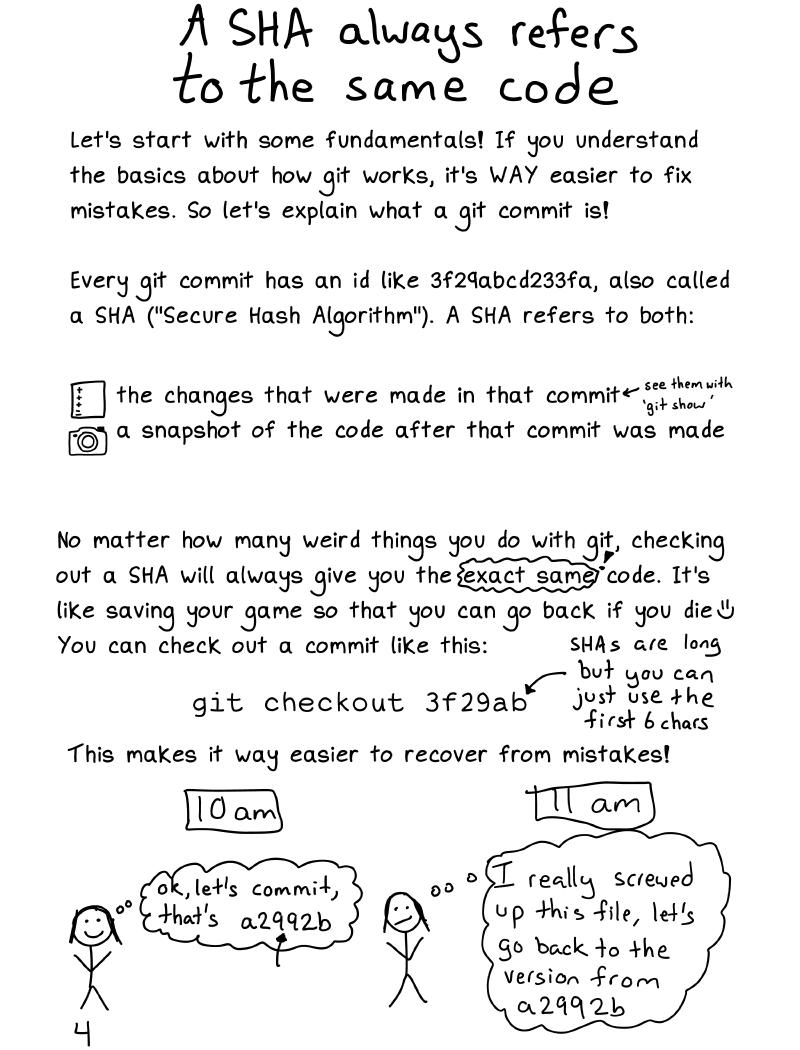 A SHA always refers
to the same code
Let's start with some fundamentals! If you understand
the basics about how git works, it's WAY easier to fix
mistakes. So let's explain what a git commit is!
Every git commit has an id like 3f29abcd233fa, also called
a SHA ("Secure Hash Algorithm"). A SHA refers to both:
the changes that were made in that commit
see them with
'git show'
a snapshot of the code after that commit was made
No matter how many weird things you do with git, checking
out a SHA will always give you the exact same code. It's
like saving your game so that you can go back if you die
You can check out a commit like this:
SHAs are long
but you can
just use the
first 6 chars
git checkout 3f29ab
This makes it way easier to recover from mistakes!
10 am
ok, let's commit,
that's a2992b
11 am
I really screwed
up this file, let's
go back to the
version from
a2992b
4